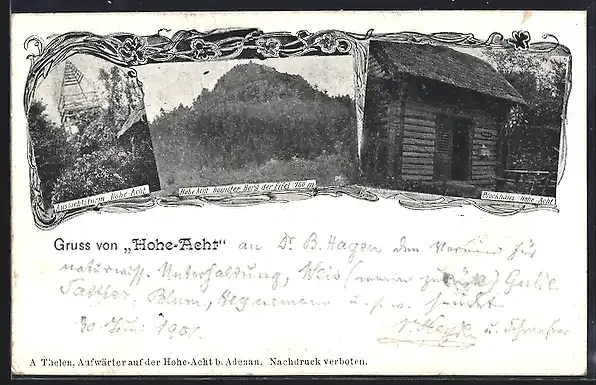 Aussichtsturm Hohe-Acht
Hohe Acht höchster Berg der Eifel 760 m
Blockhaus Hohe Acht.
Gruss von „Hohe-Acht“ an Dr. B. Hagen den Verein für
naturwiss. Unterhaltung, Weis
Sattler, Blum, Hegnemann u.s.w. sendet
30. Juni 1901.
u. Schwester
A Thelen, Aufwärter auf der Hohe-Acht b. Adenau. Nachdruck verboten.